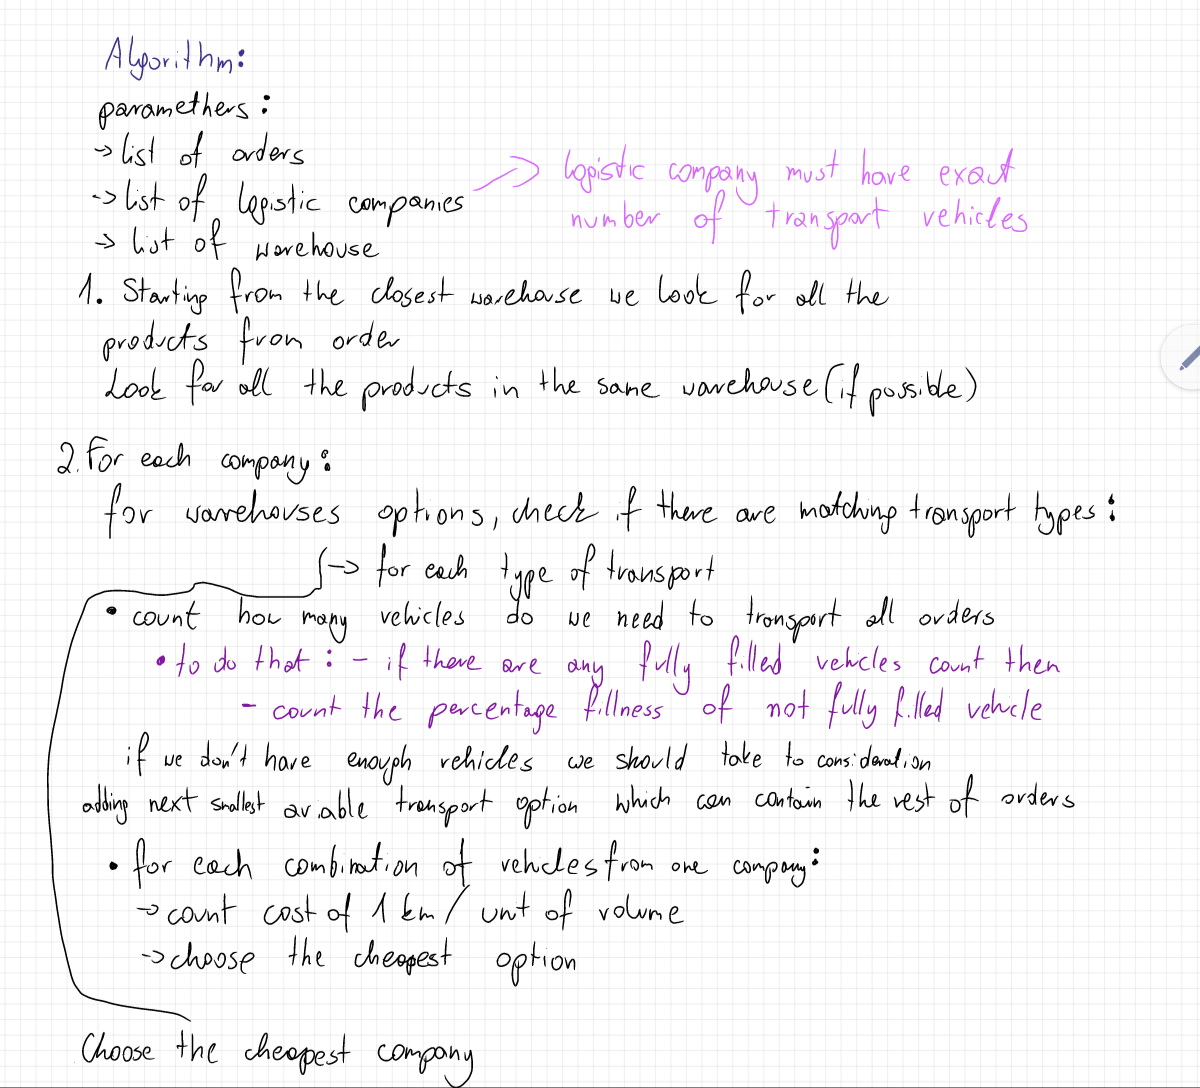 Algorithm:
paramethers:
→ list of orders
→ list of logistic companies
→ list of warehouse
→ logistic company must have exact
number of transport vehicles
1. Starting from the closest warehouse we look for all the
products from order
Look for all the products in the same warehouse (if possible)
2. For each company:
for warehouses options, check if there are matching transport types:
→ for each type of transport
• count how many vehicles do we need to transport all orders
• to do that: - if there are any fully filled vehicles count then
- count the percentage fillness of not fully filled vehicle
if we don't have enough vehicles we should take to consideration
adding next smallest avaiable transport option which can contain the rest of orders
• for each combination of vehicles from one company:
→ count cost of 1 km / unt of volume
→ choose the cheapest option
Choose the cheapest company